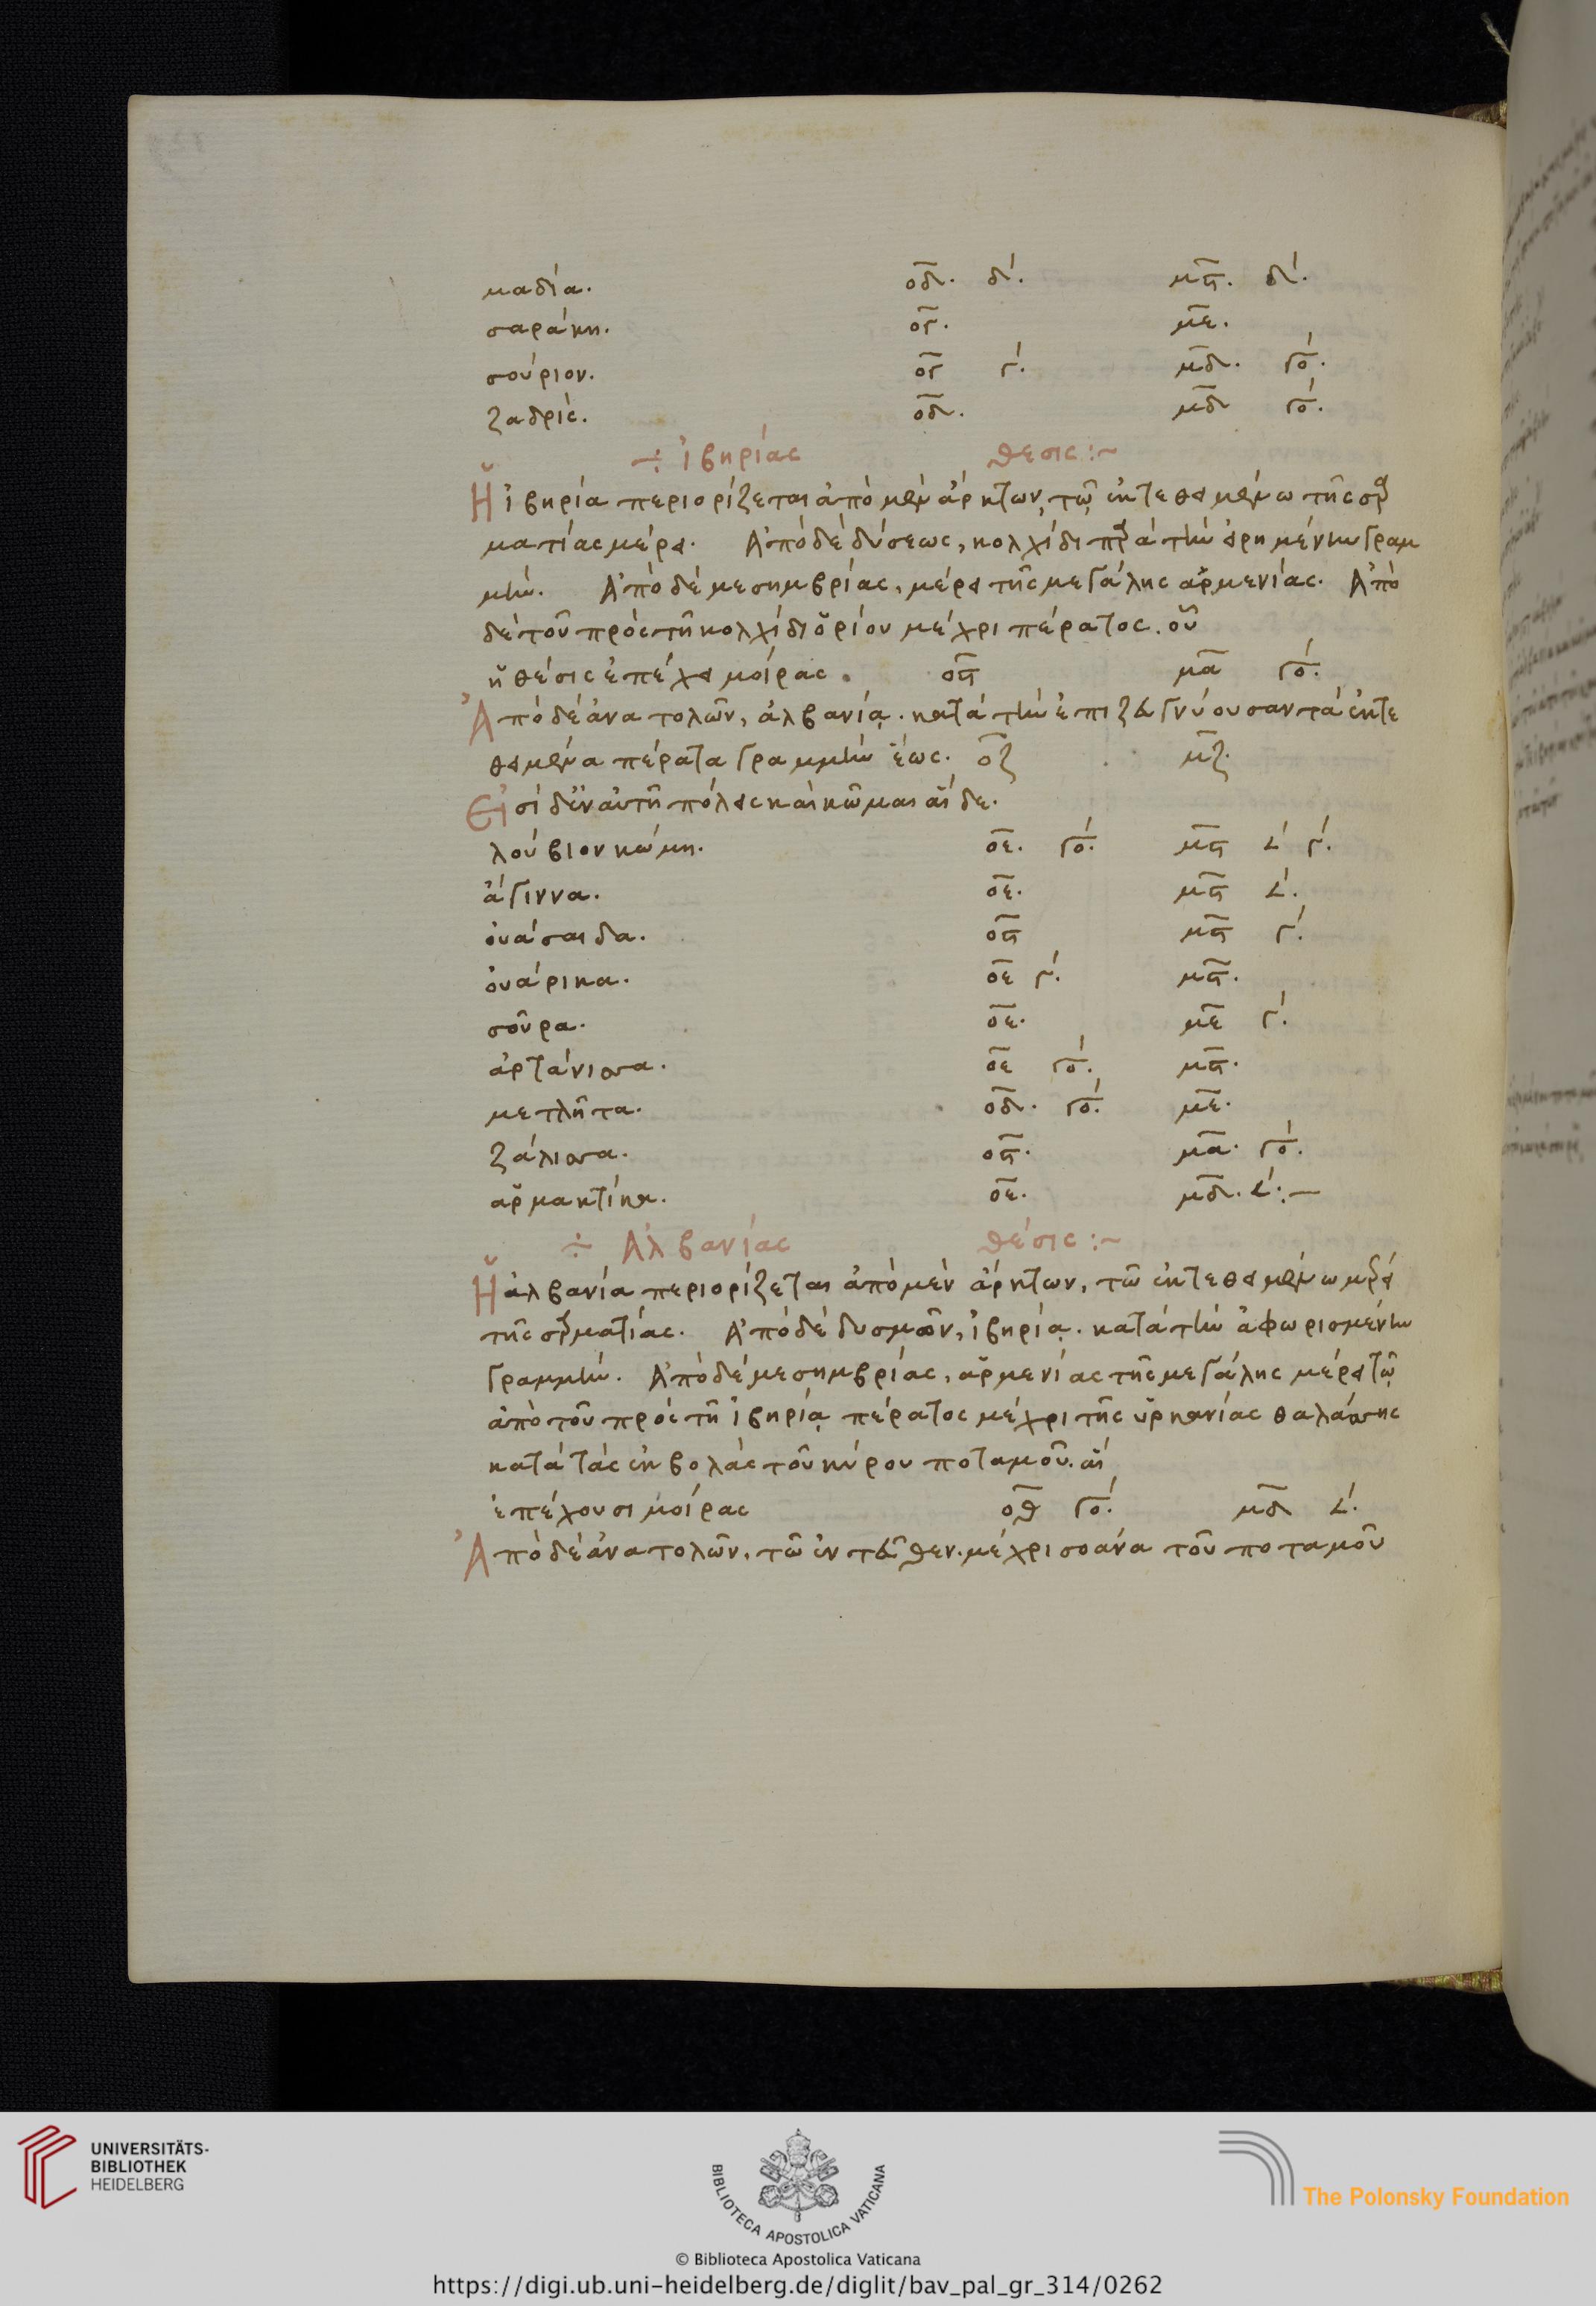 μαδία. οδ. δ'. μϛ. δ'.
σαράκη. ογ. με.
σούριον. ογ γ'. μδ. γο'.
ζαδρίς. οδ. μδ γο'.
÷ ἰβηρίας θεσις :~
Ἡ ἰβηρία περιορίζεται ἀπὸ μὲν ἄρκτων, τῶ ἐκτεθειμένω τῆς σαρ
ματίας μέρει. Ἀπὸ δὲ δύσεως, κολχίδι παρὰ τὴν εἰρημένην γραμ
μήν. Ἀπὸ δὲ μεσημβρίας, μέρει τῆς μεγάλης ἀρμενίας. Ἀπὸ
δὲ τοῦ πρὸς τῆ κολχίδι ὁρίου μέχρι πέρατος. οὗ
ἡ θέσις ἐπέχει μοίρας. οϛ μα γο'.
Ἀπὸ δὲ ἀνατολῶν, ἀλβανία. κατὰ τὴν ἐπιζευγνύουσαν τὰ ἐκτε
θειμένα πέρατα γραμμὴν ἕως. οζ μζ.
Εἰσὶ δὲ ἐν αὐτῆ πόλεις καὶ κῶμαι αἵδε.
λούβιον κώμη. οε. γο'. μϛ ∠' γ'.
ἄγιννα. οε. μϛ ∠'.
οὐάσαιδα. οϛ μϛ γ'.
οὐάρικα. οε γ'. μϛ.
σοῦρα. οε. με γ'.
ἀρτάνισσα. οε γο'. μϛ.
μετλῆτα. οδ. γο'. με.
ζάλισσα. οϛ. μα. γο'.
ἁρμακτίκα. οε. μδ. ∠' :—
÷ Ἀλβανίας θέσις :~
Ἡ ἀλβανία περιορίζεται ἀπὸ μὲν ἄρκτων, τῶ ἐκτεθειμένω μέρει
τῆς σαρματίας. Ἀπὸ δὲ δυσμῶν, ἰβηρία. κατὰ τὴν ἀφωρισμένην
γραμμήν. Ἀπὸ δὲ μεσημβρίας, ἀρμενίας τῆς μεγάλης μέρει τῶ
ἀπὸ τοῦ πρὸς τῆ ἰβηρία πέρατος μέχρι τῆς ὑρκανίας θαλάσσης
κατὰ τὰς ἐκβολὰς τοῦ κύρου ποταμοῦ. αἳ
ἐπέχουσι μοίρας οθ γο'. μδ ∠'.
Ἀπὸ δὲ ἀνατολῶν, τῶ ἐντεῦθεν. μέχρι σοάνα τοῦ ποταμοῦ
UNIVERSITÄTS-
BIBLIOTHEK
HEIDELBERG
BIBLIOTECA APOSTOLICA VATICANA
The Polonsky Foundation
© Biblioteca Apostolica Vaticana
https://digi.ub.uni-heidelberg.de/diglit/bav_pal_gr_314/0262